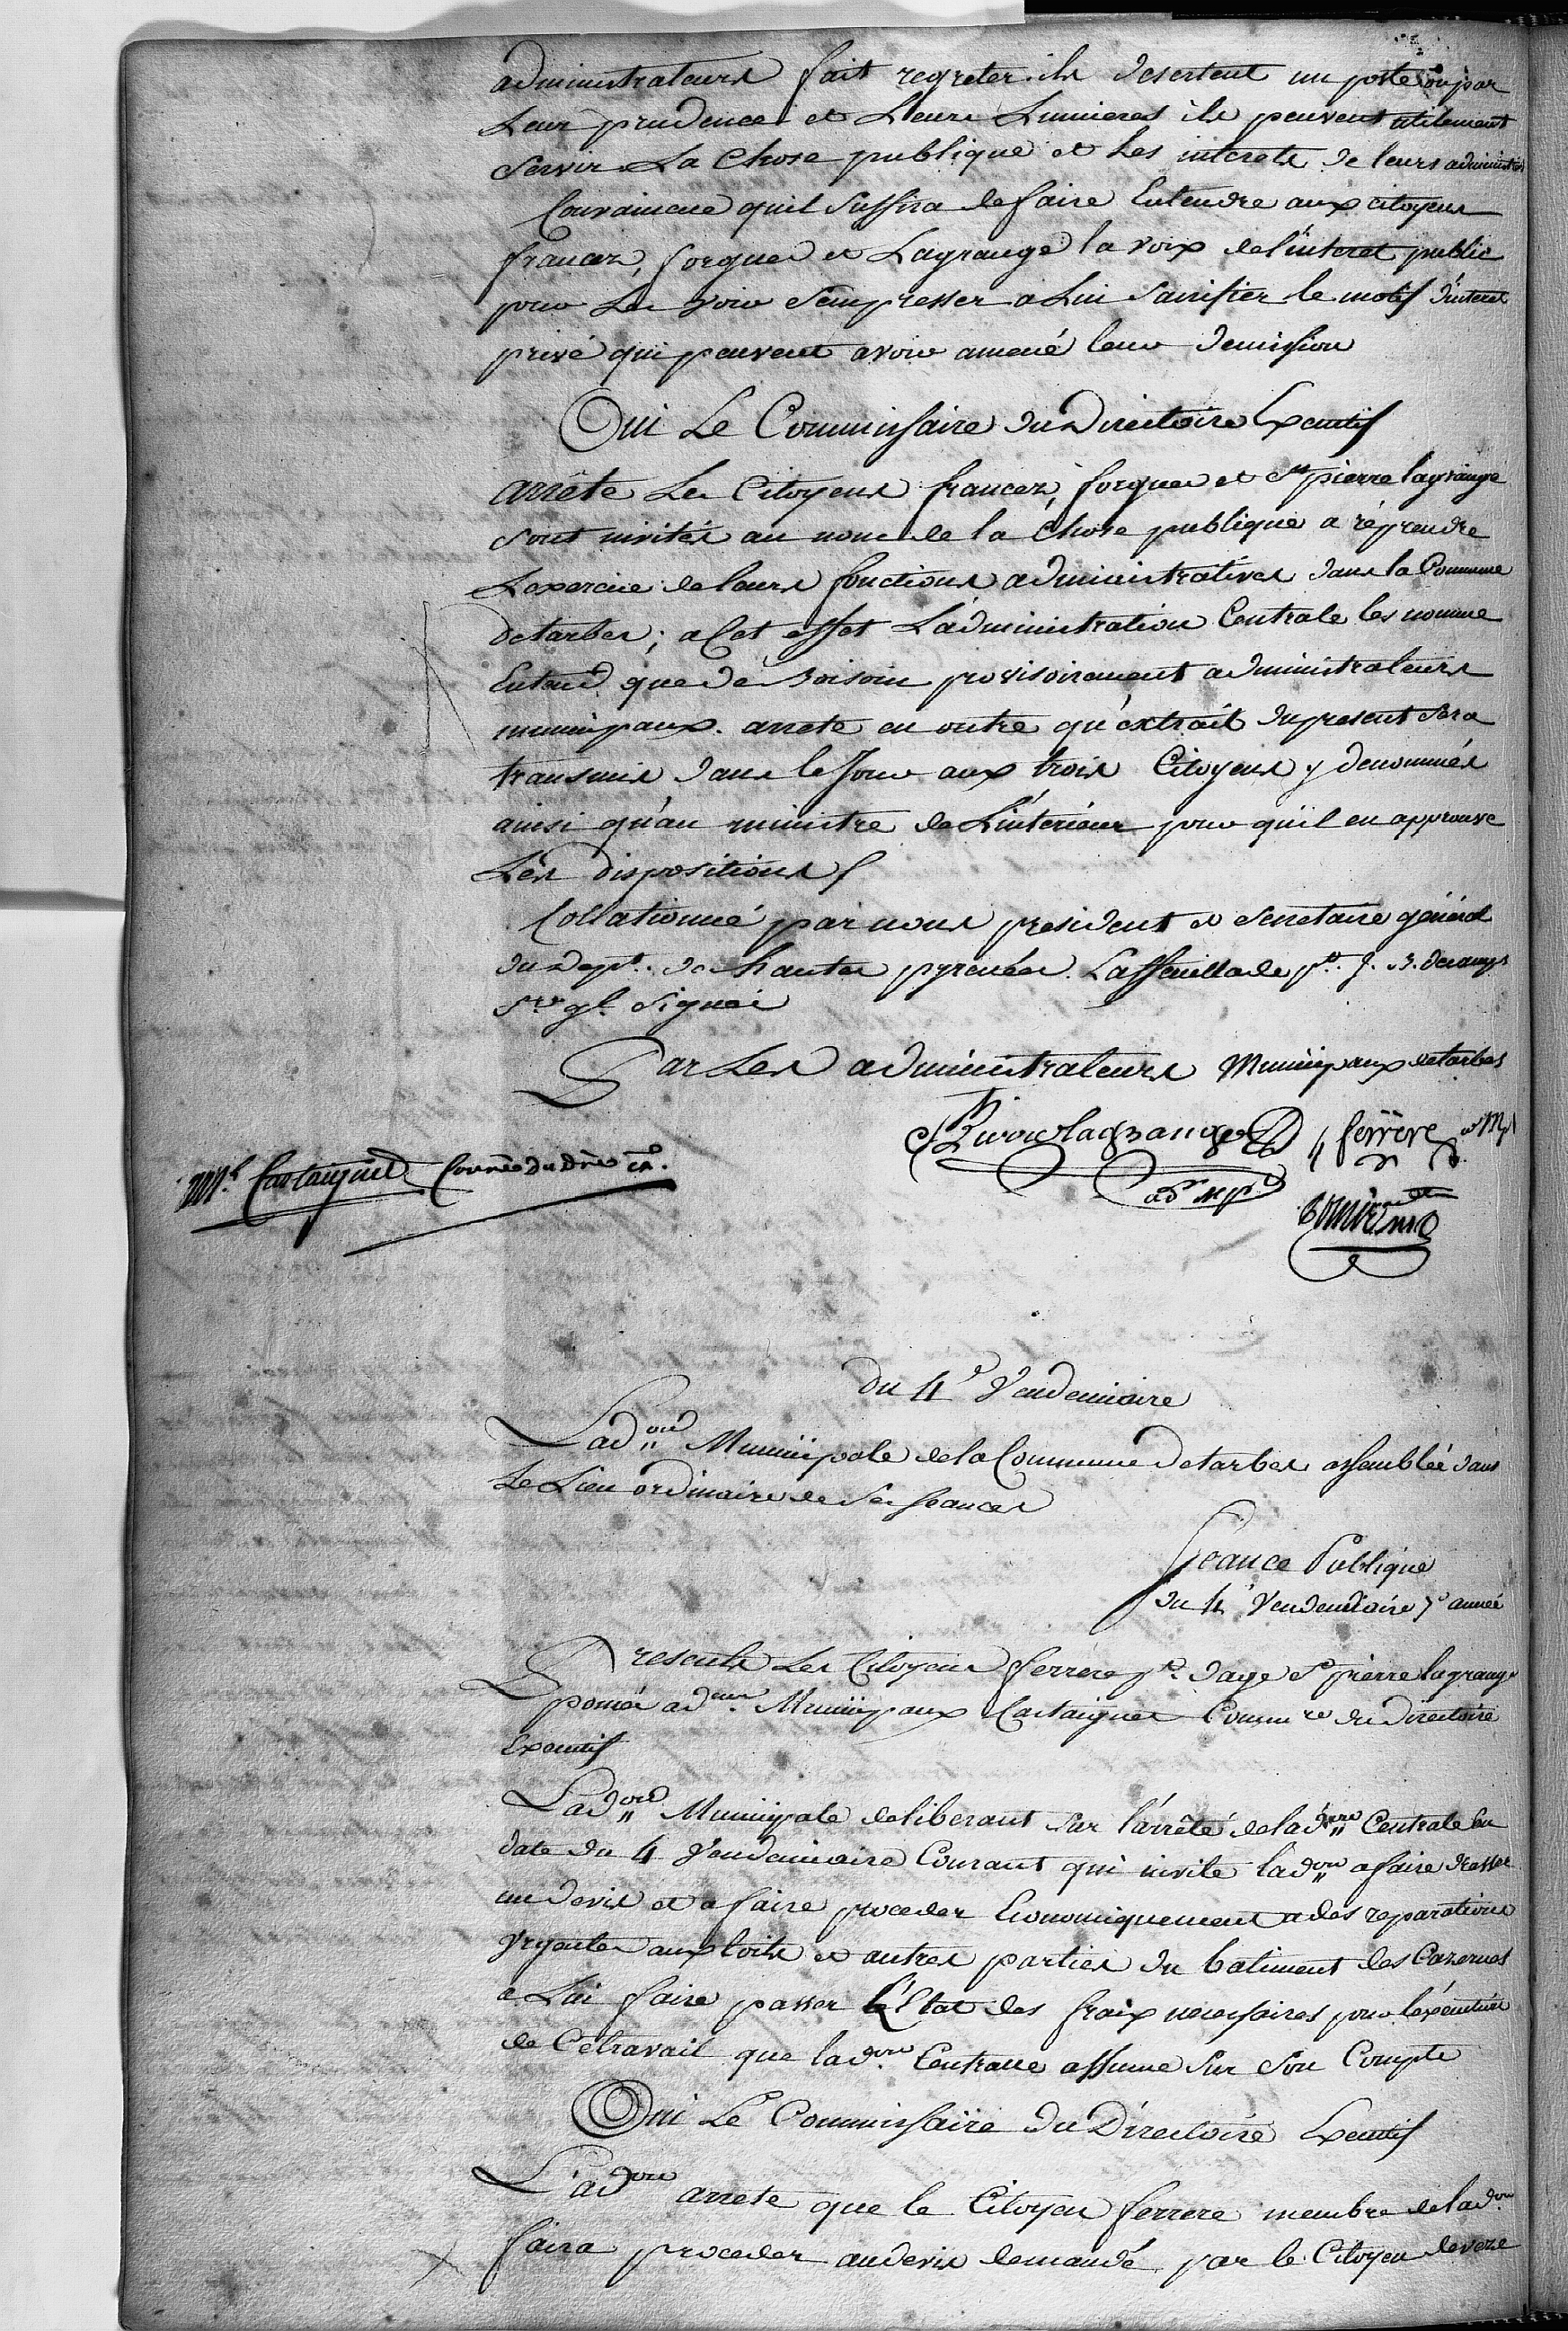 administrateurs fait regreter. ils desertent un poste ou par
Leur prudence et Leurs Lumieres ils peuvent utilement
Servir La Chose publique et Les interets de leurs administrés
Convaincue quil Suffira de faire Entendre aux citoyens
francez, forgues et Lagrange la voix de l'interet public
pour Les voir S'empresser a Lui Sacrifier le motif d'interet
privé qui peuvent avoir amené leur demission
Oui Le Commissaire du Directoire Executif
arrête Les Citoyens francez, forgues et St pierre lagrange
sont invités au nom de la Chose publique a réprendre
L'exercice de leurs fonctions administratives dans la Commune
de tarbes ; a Cet effet L'administration Centrale les nomme
Entend que de provisoirement administrateurs
municipaux. arrete en outre qu'extrait du present Sera
transmis dans le Jour aux trois Citoyens y denommés
ainsi qu'au ministre de L'interieur pour qu'il en approuve
Les dispositions
Collationné par nous president et Secretaire général
du Dept. de hautes pyrenées. Lassseillade pt. J. B. decamps
Sre gl. Signés
Par Les administrateurs Municipaux de tarbes
St Pierre lagrange ferrere a. Mpl
ad. Mpl
Castaignet Comre du Dre ex.
du 4e Vendemiaire
L'adon Municipale de la Commune de tarbes assemblée dans
Le Lieu ordinaire de Ses Seances
Seance Publique
du 4e Vendemiaire 7e année
Presents Les Citoyens ferrere pt. dage St pierre lagrange
pomés adeurs Municipaux Castaignet Commre du Directoire
Executif
L'adon Municipale deliberant Sur l'arrêté de l'adon Centrale En
date du 4 Vendemiaire Courant qui invite l'adon a faire dresser
un devis et a faire proceder Economiquement a des reparations
Urgentes aux toits et autres parties du batiment des Cazernes
a Lui faire passer L'Etat des fraix necessaires pour l'exécution
de Ce travail que l'adon Centralle assume Sur Son Compte
Oui Le Commissaire du Directoire Executif
L'adon arrete que le Citoyen ferrere membre de l'adon
faira proceder au devis demandé par le Citoyen deveze